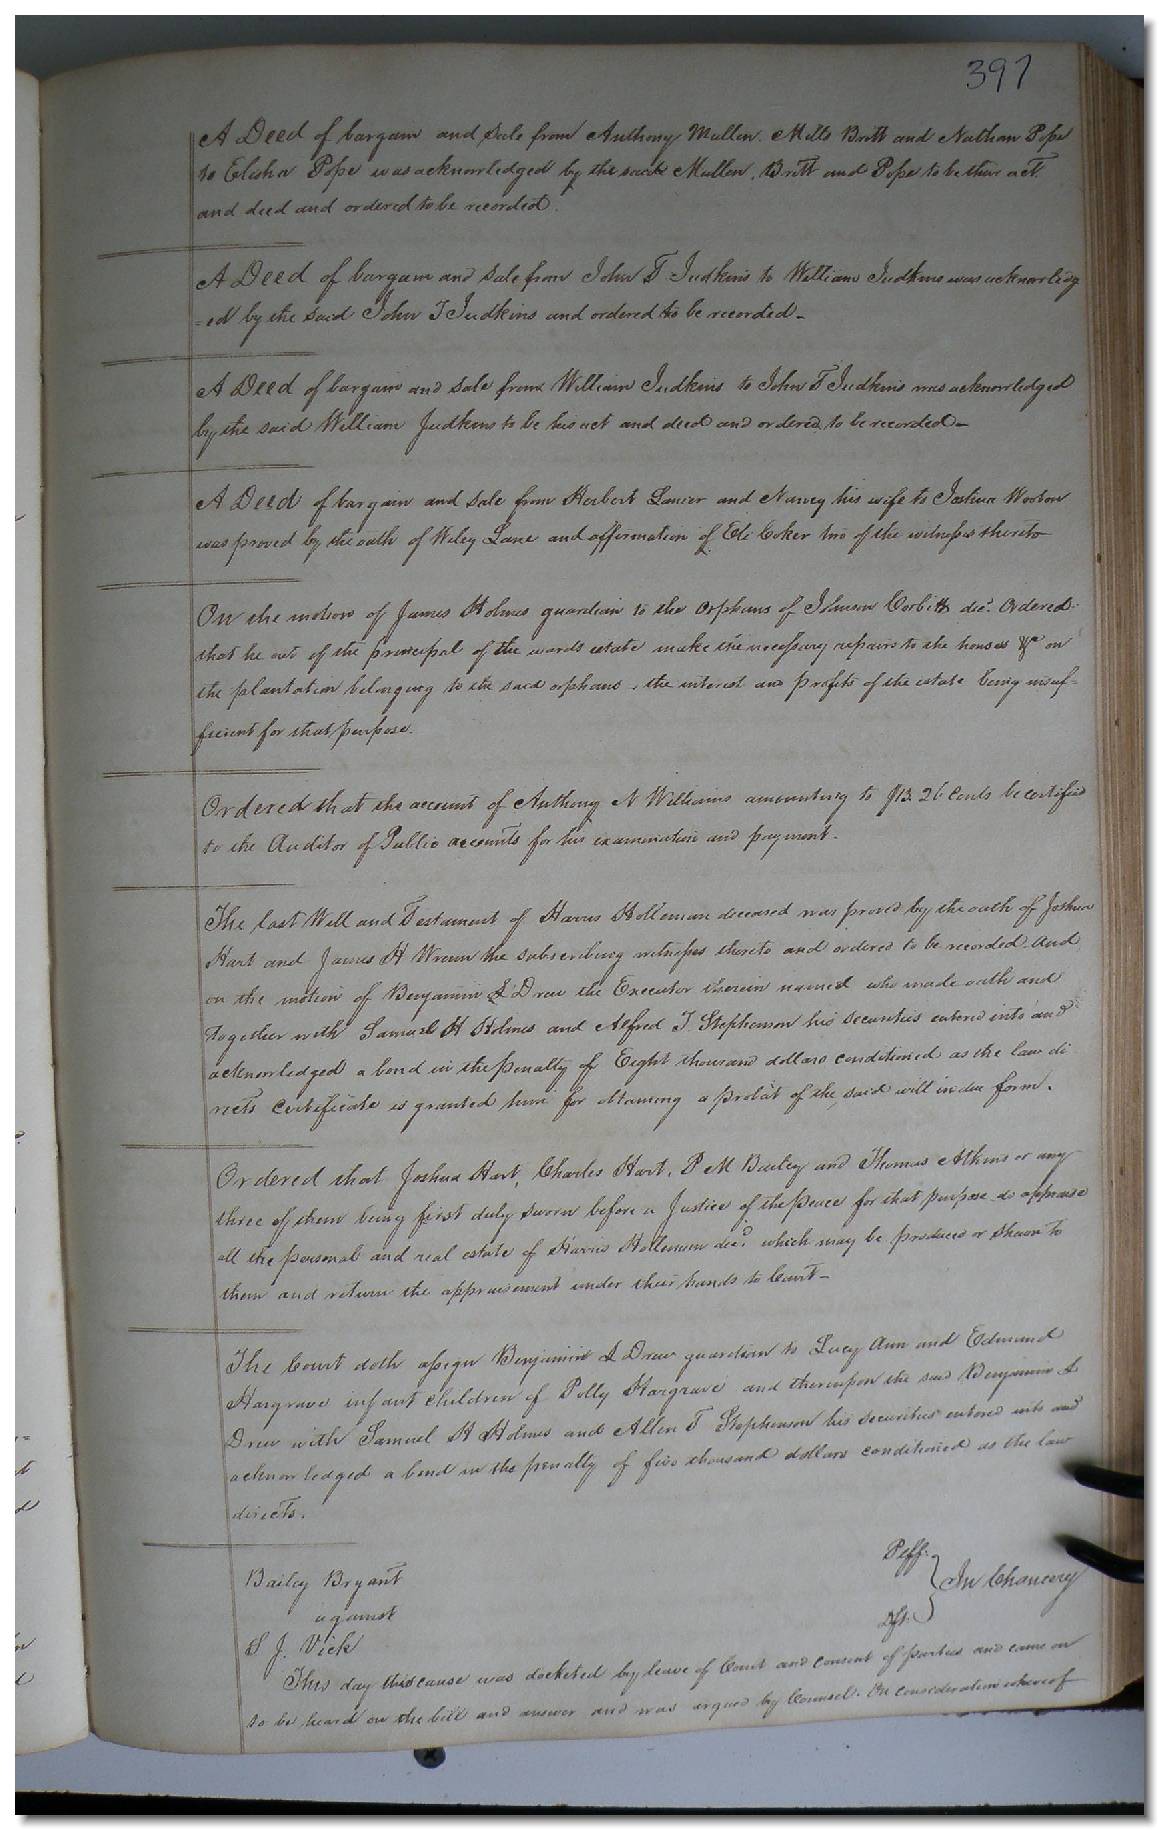 397
A Deed of bargain and Sale from Anthony Mullen. Mills Britt and Nathan Pope
to Elisha Pope was acknowledged by the said Mullen, Britt and Pope to be their act
and deed and ordered to be recorded.
A Deed of bargain and Sale from John T Judkins to William Judkins was acknowledg
=ed by the said John T Judkins and ordered to be recorded_
A Deed of bargain and Sale from William Judkins to John T Judkins was acknowledged
by the said William Judkins to be his act and deed and ordered to be recorded_
A Deed of bargain and Sale from Herbert and his wife to Joshua
was proved by the oath of Wiley Lane and affirmation of Eli Coker two of the witnesses thereto
On the motion of James Holmes guardian to the orphans of Johnson Corbitt decd. Ordered
that he out of the principal of the wards estate make the necessary repairs to the houses &c on
the plantation belonging to the said orphans, the interest and profits of the estate being insuf=
ficient for that purpose.
Ordered that the account of Anthony N Williams amounting to $13.26 Cents be certified
to the Auditor of Public accounts for his examination and payment.
The last Will and Testament of Harris Holleman deceased was proved by the oath of Joshua
Hart and James H Wrenn the subscribing witnesses thereto and ordered to be recorded. And
on the motion of Benjamin Drew the Executor therein named who made oath and
together with Samuel H Holmes and Alfred T. Stephenson his securities entered into and
acknowledged a bond in the penalty of Eight thousand dollars conditioned as the law di
rects certificate is granted him for obtaining a probat of the said will in due form.
Ordered that Joshua Hart, Charles Hart, P M Bailey and Thomas Atkins or any
three of them being first duly sworn before a Justice of the peace for that purpose do appraise
all the personal and real estate of Harris Holleman decd. which may be produced or shewn to
them and return the appraisement under their hands to Court_
The Court doth assign Benjamin Drew guardian to Lucy Ann and Edmund
Hargrave infant children of Polly Hargrave and thereupon the said Benjamin
Drew with Samuel H Holmes and Allen T Stephenson his securities entered into and
acknowledged a bond in the penalty of five thousand dollars conditioned as the law
directs.
Bailey Bryant Plff.
against } In Chancery
S J. Vick Dft.
This day this cause was docketed by leave of Court and consent of parties and came on
to be heard on the bill and answer and was argued by Counsel. On consideration whereof